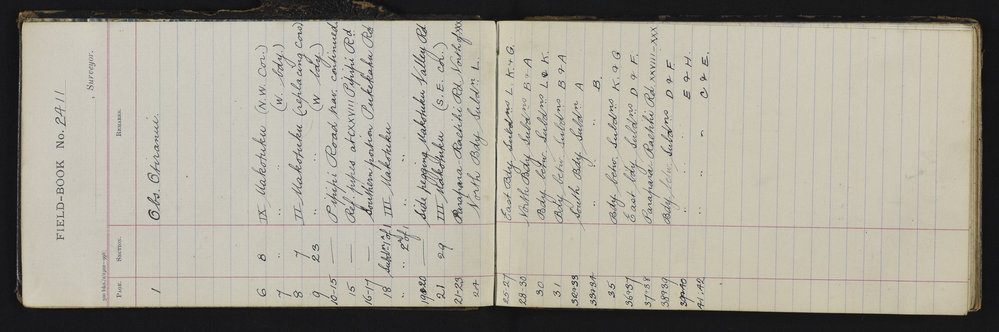 FIELD-BOOK No. 2411
, Surveyor.
PAGE. SECTION. REMARKS.
1 Obs. Oriranui.
6 8 IX Makotuku (N.W. Cor.)
7 " " (W. bdy.)
8 7 II Makotuku (replacing cors)
9 23 " (W bdy.)
10-15 — Pipipi Road trav. continued
15 — Ref. pipes at CXXVIII Pipipi Rd.
16-17 — Southern portion Pukekaha Rd.
18 Subdn 1 of 1 III Makotuku
" " 2 of 1 "
19&20 — Side pegging Makotuku Valley Rd
21 29 III Makotuku (S.E. ch.)
21-23 Parapara-Raetihi Rd North of XX
24 North Bdy Subdn L.
25-27 East Bdy Subdns L. K & G.
28-30 North Bdy Subdns B & A
30 Bdy betw. Subdns L & K.
31 Bdy betw Subdns B & A
32&33 South Bdy Subdn A
33&34 " " " B
35 Bdy betw Subdns K & G
36&37 East bdy Subdns D & F.
37-38 Parapara Raetihi Rd XXVIII-XXX
38&39 Bdy btw Subdns D & F
39&40 " " " E & H.
41-42 " " " C & E.